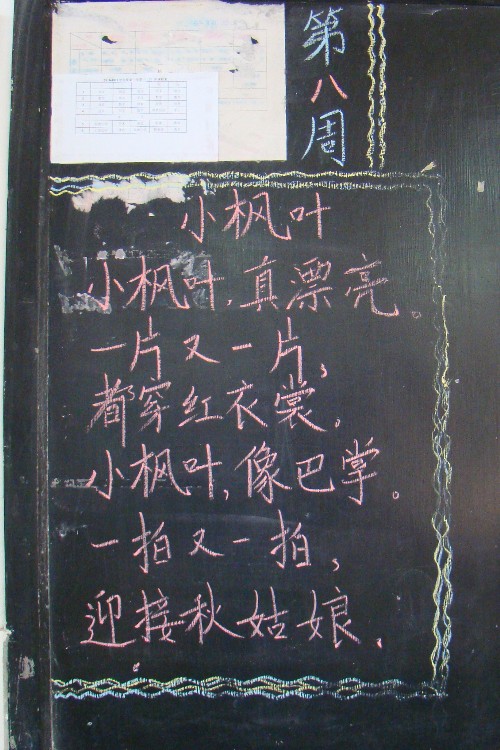 第八周
小枫叶
小枫叶,真漂亮。
一片又一片,
都穿红衣裳。
小枫叶,像巴掌。
一拍又一拍,
迎接秋姑娘.